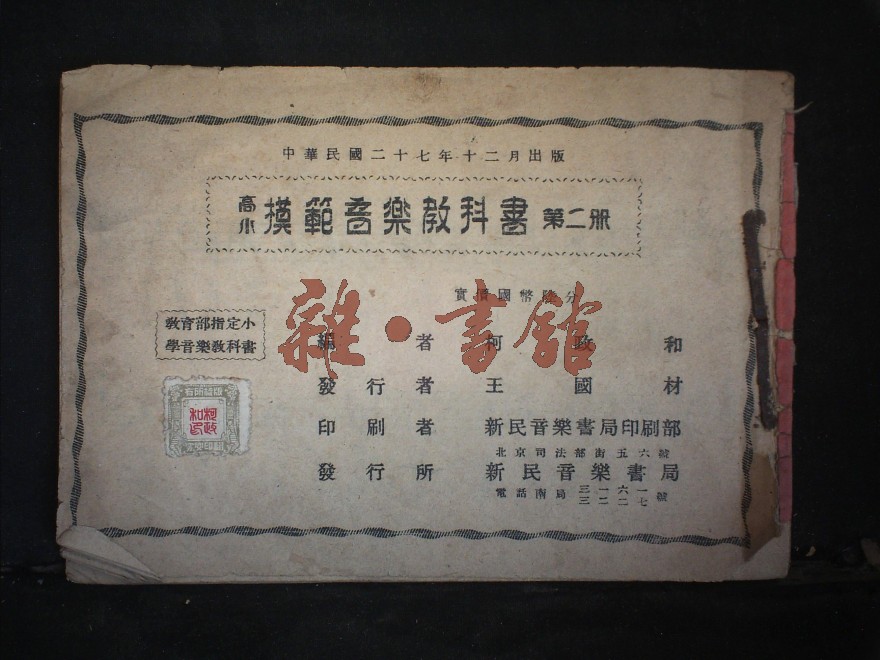 中華民國二十七年十二月出版
高小 模範音樂教科書 第二册
實價國幣陸分
教育部指定小
學音樂教科書
編者 柯政和
發行者 王國材
印刷者 新民音樂書局印刷部
北京司法部街五六號
發行所 新民音樂書局
電話南局 三一六一 三二二七 號
柯政和印
雜·書館